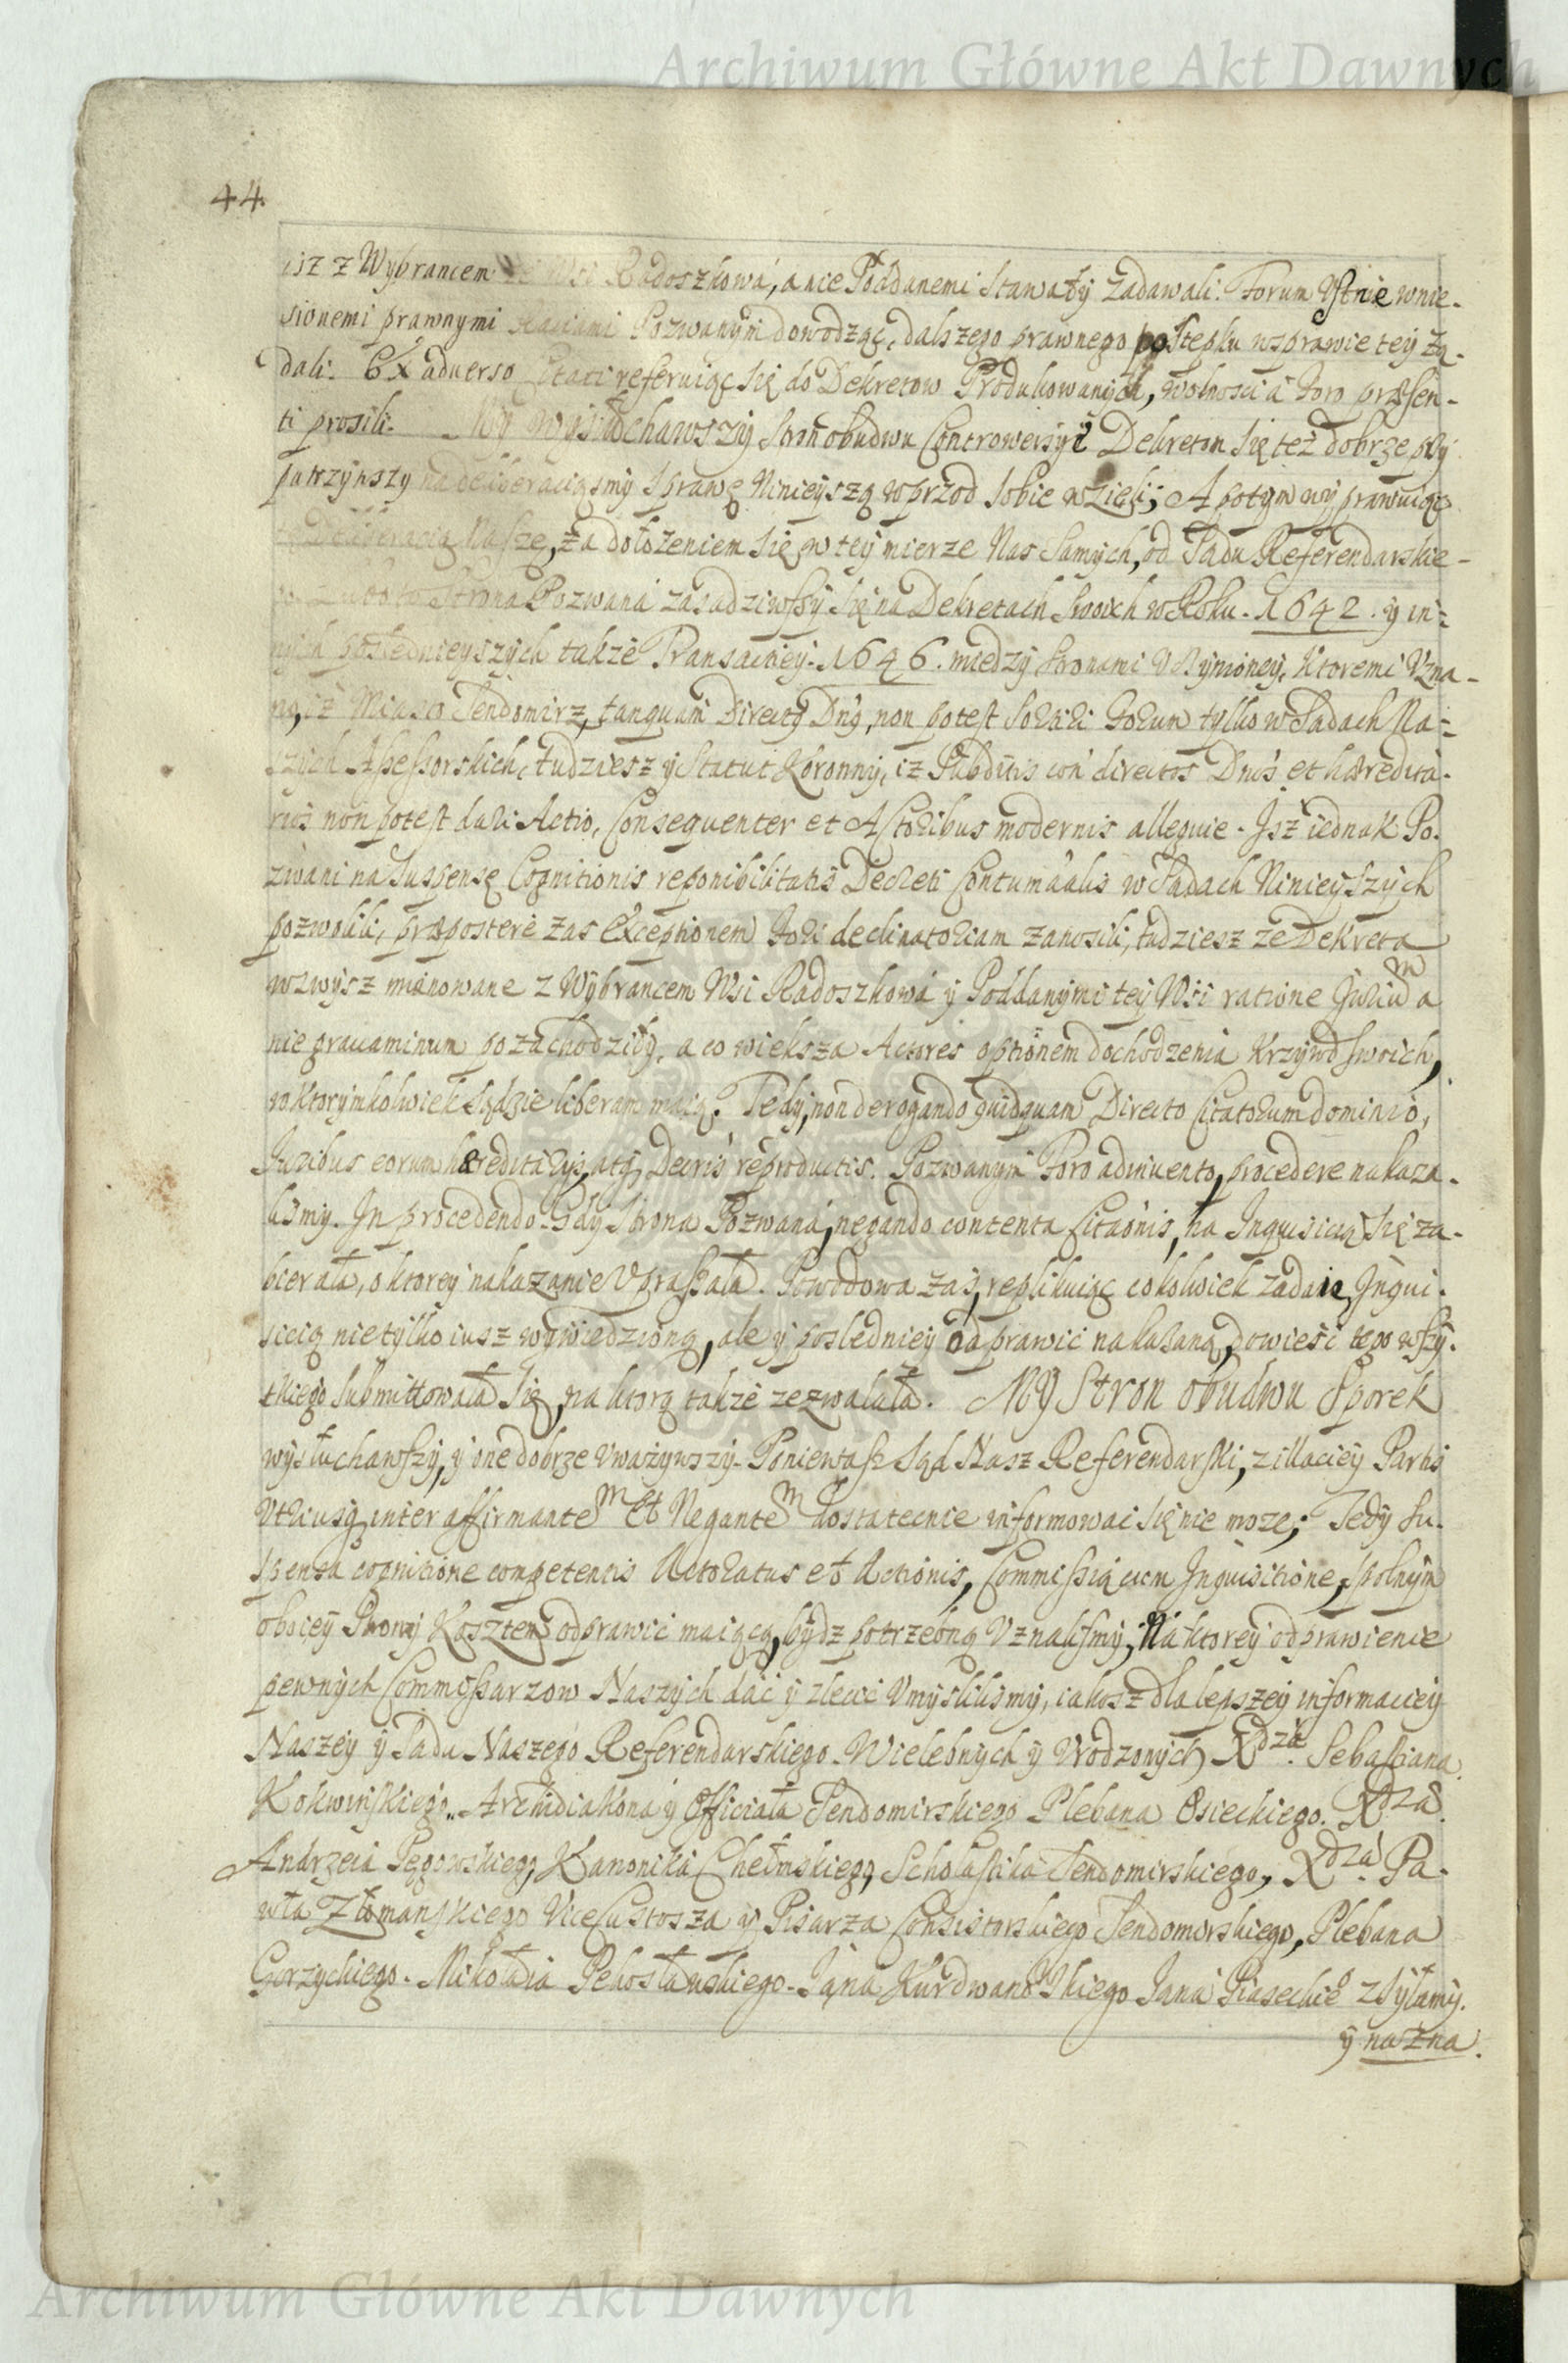 Archiwum Główne Akt Dawnych
44.
isz z Wybrancem Wsi Radoszkowa, a nie Poddanemi Stawały zadawali. Forum Vstnie wnie-
sionemi prawnymi Raciami Pozwanym dowodząc, dalszego prawnego postępku w sprawie tey żą-
dali. Ex aduerso Citati referuiąc się do Dekretow Produkowanych, wolnosci a Foro præsen-
ti prosili. My wysłuchawszy Stron obudwu Controwersyi Dekretom się też dobrze przy
patrzywszy na deliberacią smy Sprawę Ninieyszą wprzod sobie wzięli; A potym wyprawuiąc
Deliberacią Nasze, za dołożeniem się w tey mierze Nas Samych, od Sądu Referendarskie-
Strona Pozwana zasadziwszy się na Dekretach Swoich w Roku. 1642. y in-
nych poslednieyszych także Transactiey. 1646. między Stronami Vczynioney, Ktoremi Vzna-
no, iż Miasto Sendomirz, tanquam Directq Dnq, non potest Sortiri Forum tylko w Sądach Na-
szych Assessorskich, tudziesz y Statut Koronny, iz Subditis con directos Dnos et hæredita-
rios non potest dari Actio, Consequenter et Actoribus modernis . Jsz iednak Po-
zwani na Suspensę Cognitionis reponibilitatis Decreti Contumacialis w Sądach Ninieyszych
pozwolili, præpostere zas Exceptionem Fori declinatoriam zanosili, tudziesz ze Dekreta
wzwysz mianowane z Wybrancem Wsi Radoszkowa y Poddanymi tey Wsi ratione Juriũ a
nie grauaminum pozachodziły, a co większa Actores optionem dochodzenia Krzywd swoich,
w ktorymkolwiek Sądzie liberam maią. Tedy, non derogando quidquam Directo Citatorum dominio,
Juribus eorum hæreditarijs, atq Decris reproductis. Pozwanym Foro adinuento, procedere nakaza-
lismy. In procedendo gdy Strona Pozwana, negando contenta Citaonis, na Inquisicią się za-
bierała, o ktorey nakazanie Vpraszała. Powodowa zas, replikuiąc cokolwiek zadaie, Jnqui-
sicią nie tylko iusz wywiedzioną, ale y posledniey odprawić nakazaną, dowieść tego wszy-
tkiego submittowała się, na ktorą także zezwalała. MY Stron obudwu Sporek
wysłuchawszy, y one dobrze Vważywszy. Poniewasz Sąd Nasz Referendarski, z illaciey Partis
Vtriusq inter affirmantem et Negantem dostatecnie informować się nie moze; Tedy Su-
spensa cognitione competentis Actoratus et Actionis, Commissią cum Inquisitione, spolnym
oboiey Strony Kosztem odprawić maiącą, bydz potrzebną Vznalismy, Na ktorey odprawienie
pewnych Commissarzow Naszych dać y zlecić Vmyslilismy, iakosz dla lepszey informaciey
Naszey y Sądu Naszego Referendarskiego. Wielebnych y Vrodzonych Xdza. Sebastiana
Kokwinskiego. Archidiakona y Officiała Sendomirskiego Plebana Osieckiego. Xdza.
Andrzeia Pęgowskiego, Kanonika Chełmskiego, Scholastika Sendomirskiego, Xdza. Pa-
wła Złomanskiego ViceCustosza y Pisarza Consistorskiego Sendomirskiego, Plebana
Gorzyckiego. Mikołaia Pekosławskiego. Jana Kurdwanowskiego Jana Piaseckiego zsyłamy.
y nazna.
Archiwum Główne Akt Dawnych